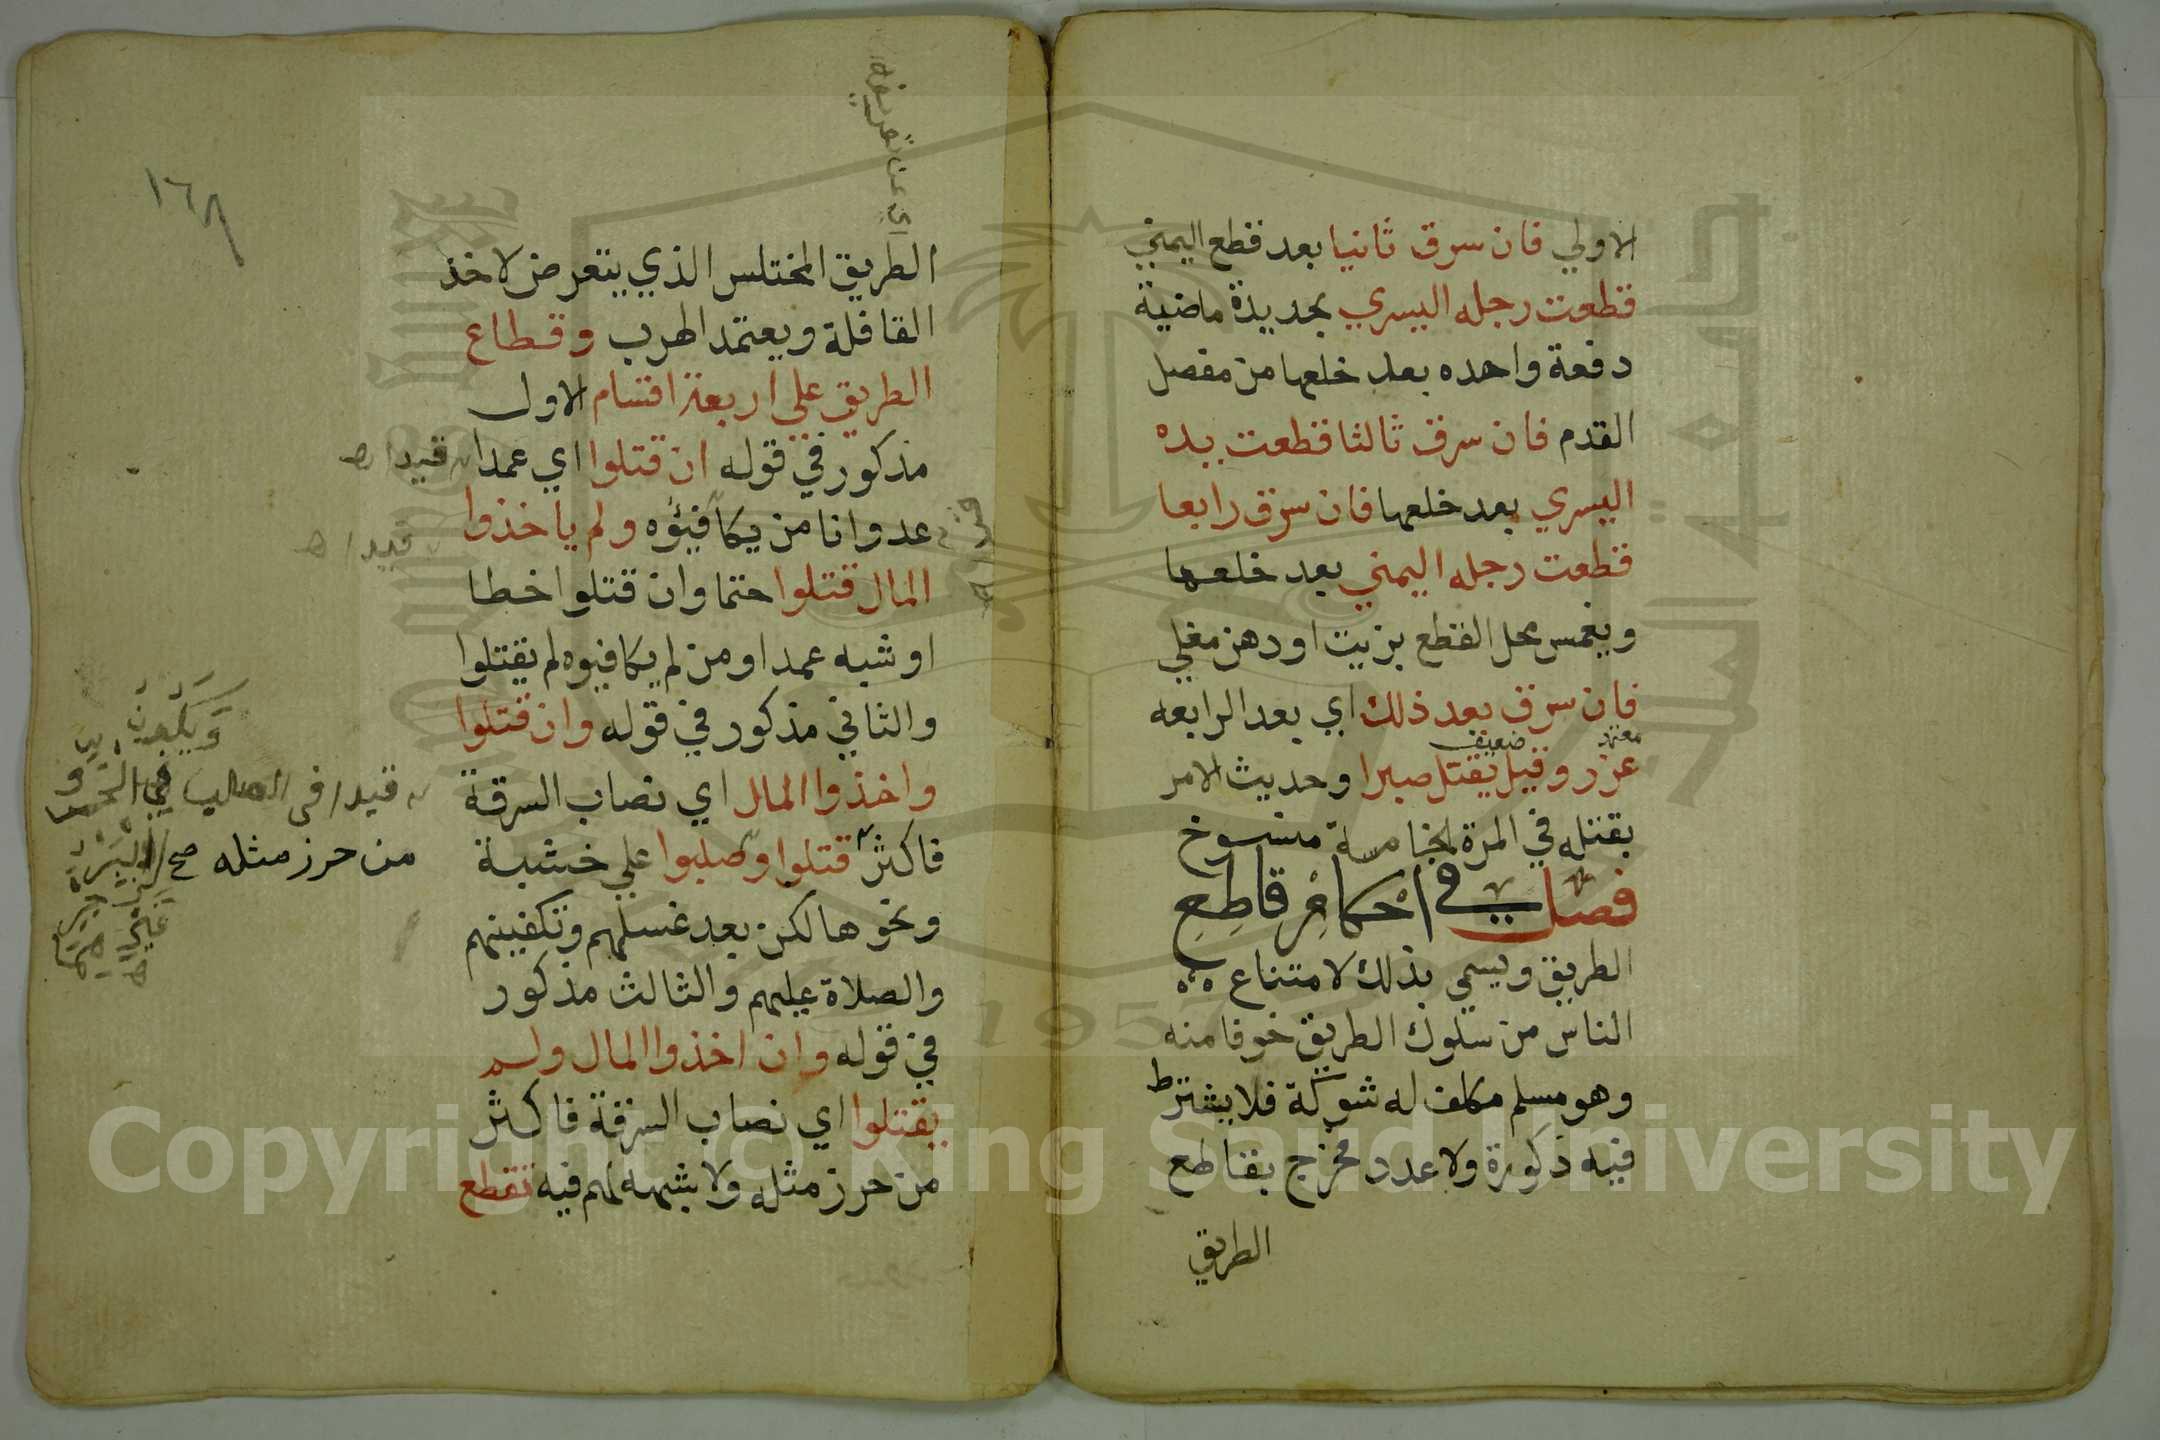 الاولي فان سرق ثانيا بعد قطع اليمني
قطعت رجله اليسري بحديدة ماضية
دفعة واحده بعد خلعها من مفصل
القدم فان سرق ثالثا قطعت يده
اليسري بعد خلعها فان سرق رابعا
قطعت رجله اليمني بعد خلعها
ويغمس محل القطع بزيت او دهن مغلي
فان سرق بعد ذلك اي بعد الرابعه
معتمد ضعيف
عزر وقيل يقتل صبرا وحديث الامر
بقتله في المرة الخامسة منسوخ
فصل في احكام قاطع
الطريق ويسمي بذلك لامتناع
الناس من سلوك الطريق خوفا منه
وهو مسلم مكلف له شوكة فلا يشترط
فيه ذكورة ولا عدد فخرج بقاطع
الطريق
١٦٨
اي عن تعريفه
الطريق المختلس الذي يتعرض لاخذ
القافلة ويعتمد الهرب وقطاع
الطريق علي اربعة اقسام الاول
مذكور في قوله ان قتلوا اي عمدا
قيد اه
عدوانا من يكافيؤه ولم ياخذوا
قيد اه
المال قتلوا حتما وان قتلوا خطا
او شبه عمد او من لم يكافيوه لم يقتلوا
والثاني مذكور في قوله وان قتلوا
واخذوا المال اي نصاب السرقة
قيد في الصلب
فاكثر قتلوا وصلبوا علي خشبة
من حرز مثله صح
ونحوها لكن بعد غسلهم وتكفينهم
والصلاة عليهم والثالث مذكور
في قوله وان اخذوا المال ولم
يقتلوا اي نصاب السرقة فاكثر
من حرز مثله ولا شبهه لهم فيه تقطع
Copyright © King Saud University
1957